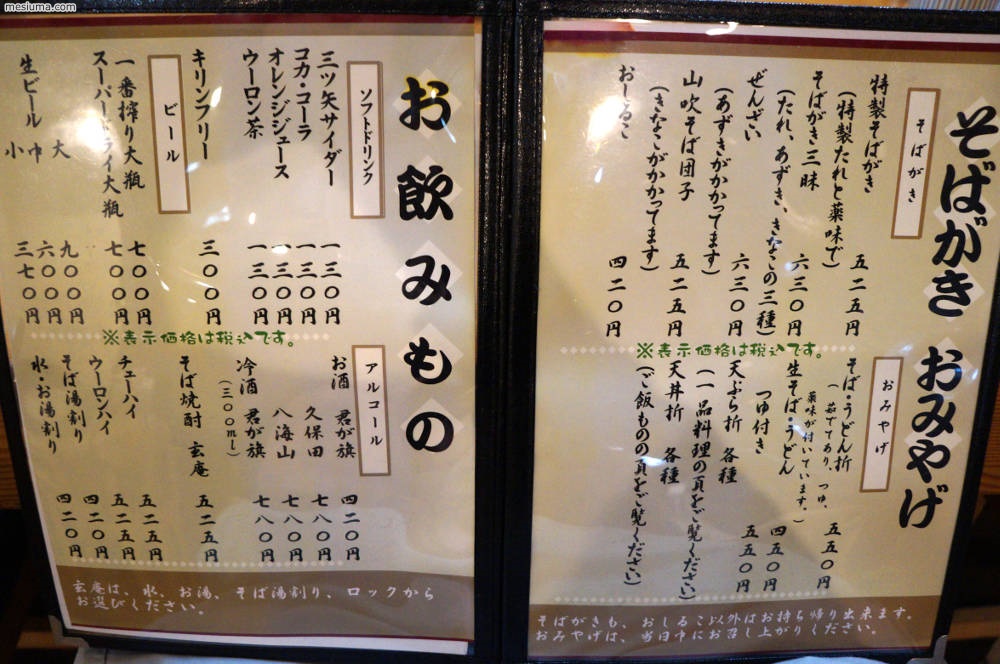 mesiuma.com
そばがき おみやげ
そばがき
特製そばがき 五二五円
(特製たれと薬味で)
そばがき三昧 六三〇円
(たれ、あずき、きなこの三種)
ぜんざい 六三〇円
(あずきがかかってます)
山吹そば団子 五二五円
(きなこがかかってます)
おしるこ 四二〇円
※表示価格は税込です。
おみやげ
そば・うどん折 五五〇円
(茹でてあり、つゆ、
薬味が付いています。)
生そば・うどん 四五〇円
つゆ付き 五五〇円
天ぷら折 各種
(一品料理の頁をご覧ください)
天丼折 各種
(ご飯ものの頁をご覧ください)
そばがきも、おしるこ以外はお持ち帰り出来ます。
おみやげは、当日中にお召し上がりください。
お飲みもの
ソフトドリンク
三ツ矢サイダー 一三〇円
コカ・コーラ 一三〇円
オレンジジュース 一三〇円
ウーロン茶 一三〇円
キリンフリー 三〇〇円
ビール
一番搾り大瓶 七〇〇円
スーパードライ大瓶 七〇〇円
生ビール 大 九〇〇円
中 六〇〇円
小 三七〇円
※表示価格は税込です。
アルコール
お酒 君が旗 四二〇円
久保田 七八〇円
八海山 七八〇円
冷酒 君が旗 七八〇円
(三〇〇ml)
そば焼酎 玄庵 五二五円
チューハイ 五二五円
ウーロンハイ 五二五円
そば湯割り 四二〇円
水・お湯割り 四二〇円
玄庵は、水、お湯、そば湯割り、ロックから
お選びください。